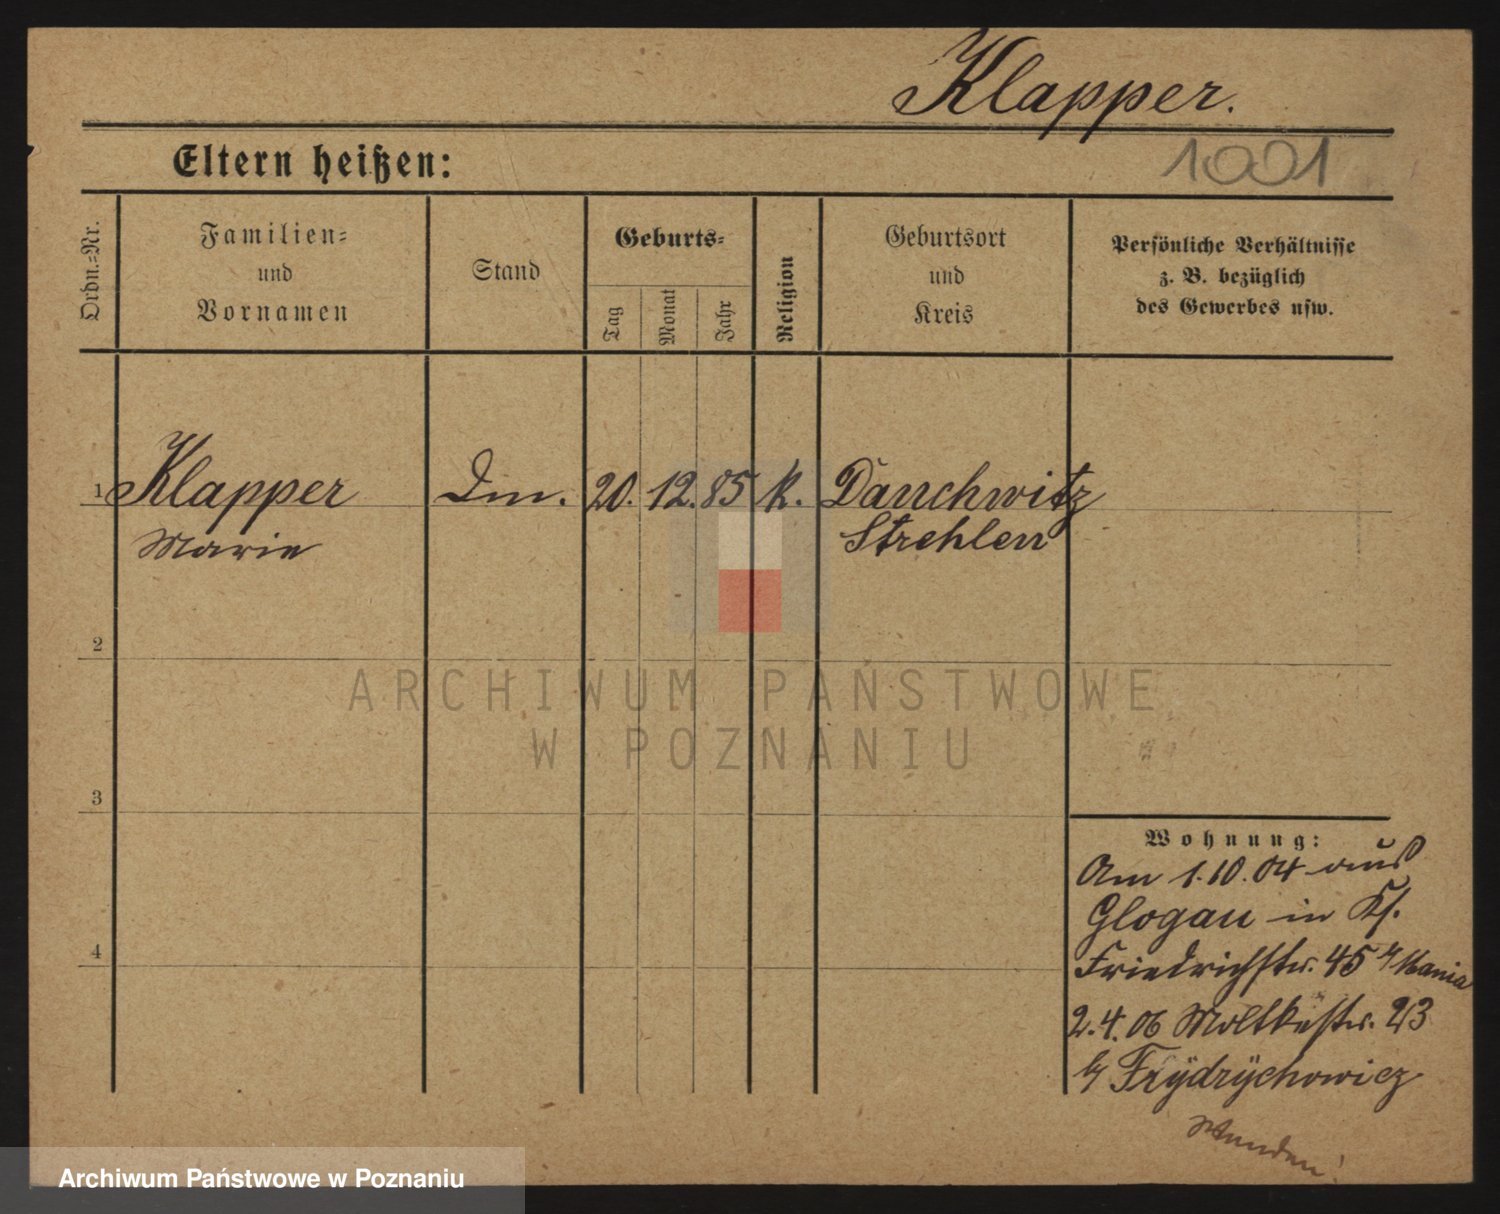 Klapper.
1001
Eltern heißen:
Ordn.-Nr.
Familien-
und
Vornamen
Stand
Geburts-
Tag
Monat
Jahr
Religion
Geburtsort
und
Kreis
Persönliche Verhältnisse
z. B. bezüglich
des Gewerbes usw.
1 Klapper Dm. 20. 12. 85 k. Danchwitz
Marie Strehlen
2
ARCHIWUM PAŃSTWOWE
W POZNANIU
3
Wohnung:
Am 1.10.04 aus
Glogau in
Friedrichstr. 45
4
2.4.06 Moltkestr. 23
b/ Frÿdrÿchowicz
Archiwum Państwowe w Poznaniu